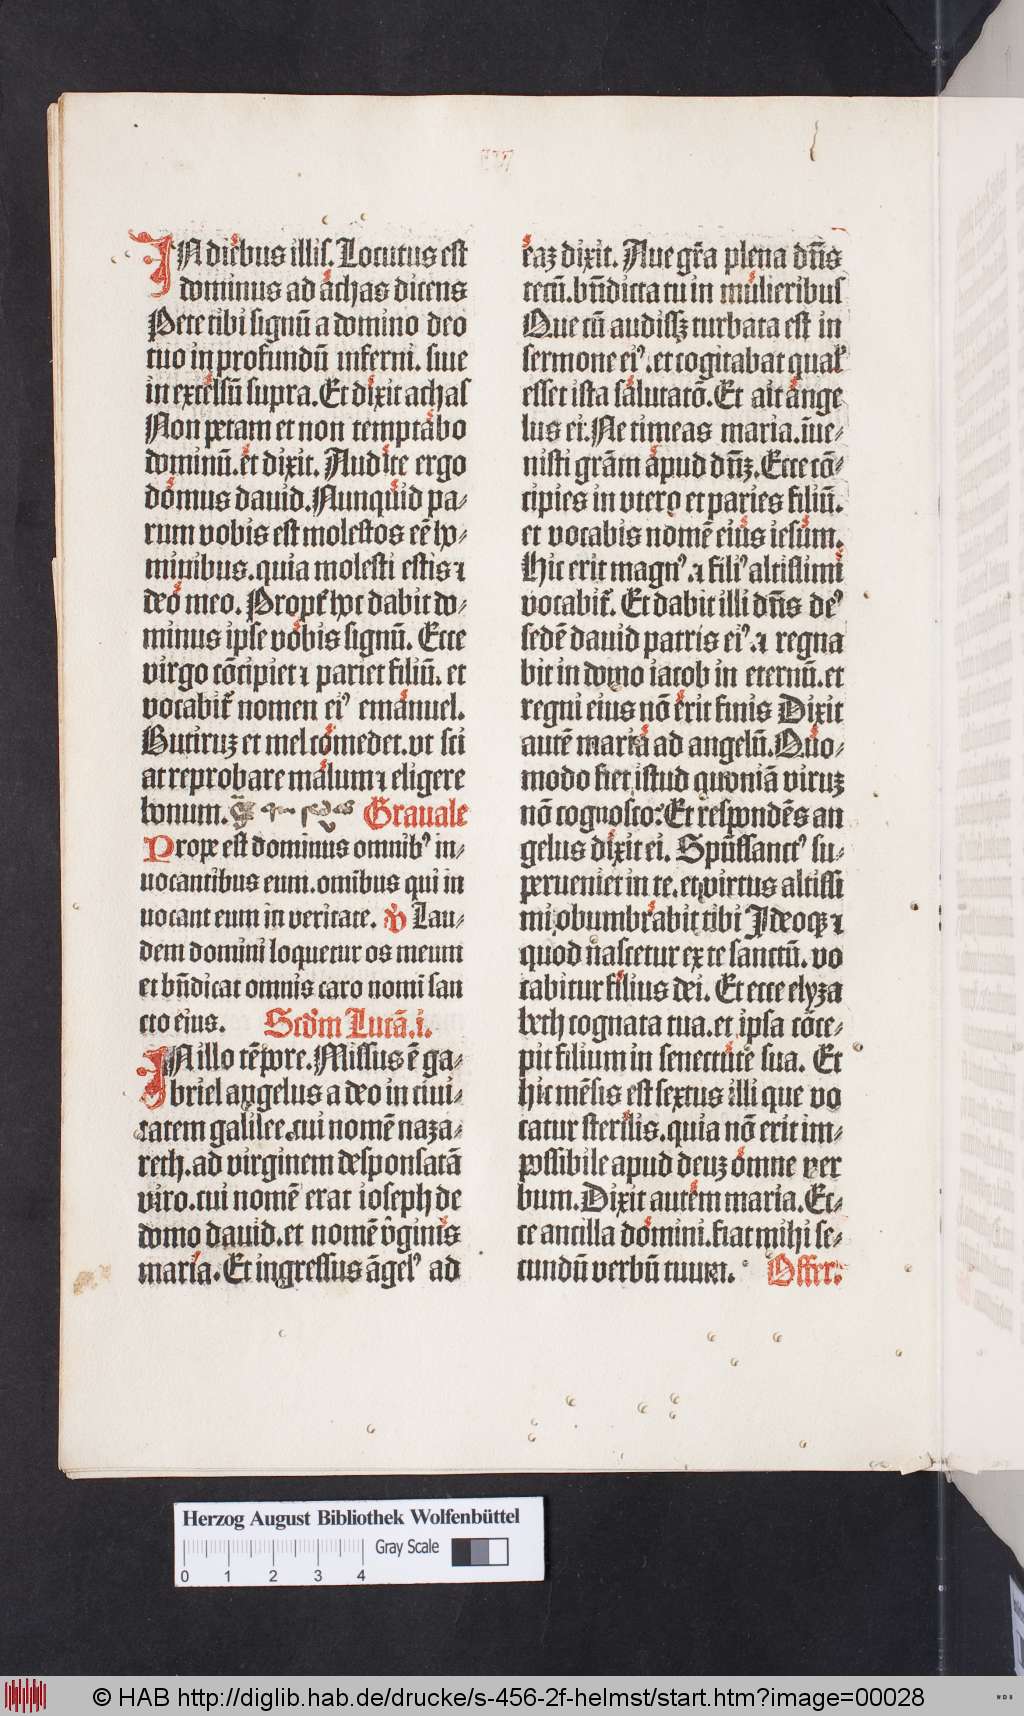 IN diebus illis. Locutus est
dominus ad achas dicens
Pete tibi signū a domino deo
tuo in profundū inferni. siue
in excelsū supra. Et dixit achas
Non petam et non temptabo
dominū. et dixit. Audite ergo
domus dauid. Nunquid pa⸗
rum vobis est molestos eē ho⸗
minibus. quia molesti estis ⁊
deo meo. Propt̄ hoc dabit do⸗
minus ipse vobis signū. Ecce
virgo cōcipiet ⁊ pariet filiū. et
vocabit̄ nomen eiꝰ emanuel.
Butiruꝫ et mel cōmedet. vt sci
at reprobare malum ⁊ eligere
bonum. Gradale
Prope est dominus omnibꝰ in⸗
uocantibus eum. omībus qui in
uocant eum in veritate. ℣ Lau⸗
dem domini loquetur os meum
et bn̄dicat omnis caro nomī san
cto eius. Scd̄m Lucā. i.
IN illo tēpore. Missus ē ga⸗
briel angelus a deo in ciui⸗
tatem galilee. cui nomē naza⸗
reth. ad virginem desponsatā
viro. cui nomē erat ioseph de
domo dauid. et nomē v̂ginis
maria. Et ingressus āgelꝰ ad
eaꝫ dixit. Aue gr̄a plena dn̄s
tecū. bn̄dicta tu in mulieribus
Que cū audissꝫ turbata est in
sermone eiꝰ. et cogitabat qual̄
esset ista salutatō. Et ait ange
lus ei. Ne timeas maria. īue⸗
nisti grām apud dn̄ꝫ. Ecce cō⸗
cipies in vtero et paries filiū.
et vocabis nomē eius iesum.
Hic erit magnꝰ. ⁊ filiꝰ altissimi
vocabit̄. Et dabit illi dn̄s deꝰ
sedē dauid patris eiꝰ. ⁊ regna
bit in domo iacob in eternū. et
regni eius nō erit finis Dixit
autē maria ad angelū. Quo⸗
modo fiet istud quoniā viruꝫ
nō cognosco. Et respondēs an
gelus dixit ei. Spūssanctꝰ su⸗
perueniet in te. et virtus altissi
mi obumbrabit tibi Ideoqꝫ ⁊
quod nascetur ex te sanctū. vo
cabitur filius dei. Et ecce elyza
beth cognata tua. et ipsa cōce⸗
pit filium in senectute sua. Et
hic mēsis est sextus illi que vo
catur sterilis. quia nō erit im⸗
possibile apud deuꝫ omne ver
bum. Dixit autem maria. Ec⸗
ce ancilla domini. fiat mihi se⸗
cundū verbū tuum. Offrr.
Herzog August Bibliothek Wolfenbüttel
Gray Scale
0 1 2 3 4
© HAB http://diglib.hab.de/drucke/s-456-2f-helmst/start.htm?image=00028